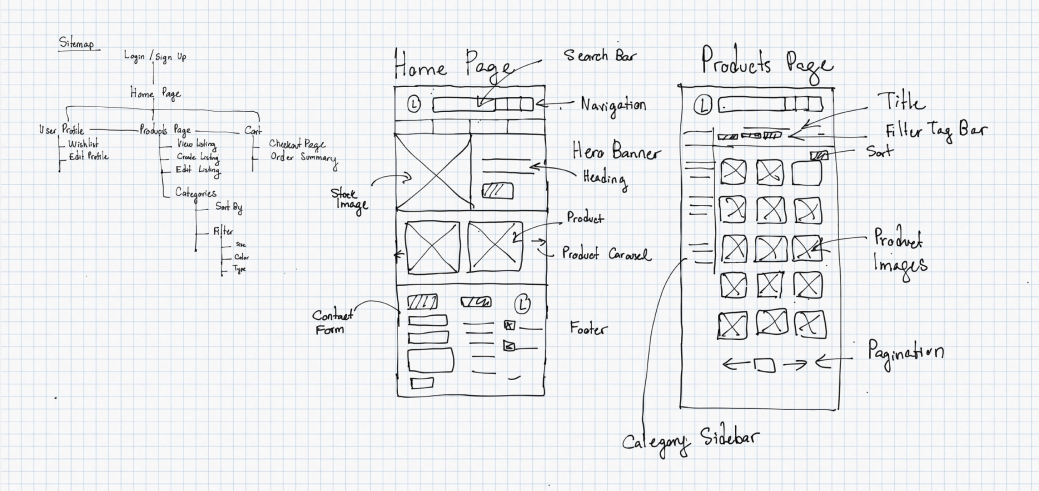 Sitemap
Login / Sign Up
Home Page
User Profile
Wishlist
Edit Profile
Products Page
View Listing
Create Listing
Edit Listing
Categories
Sort By
Filter
Size
Color
Type
Cart
Checkout Page
Order Summary
Home Page
Search Bar
Navigation
L
Hero Banner
Heading
Stock
Image
Product
Product Carousel
Contact
Form
L
Footer
Products Page
L
Title
Filter Tag Bar
Sort
Product
Images
Pagination
Category Sidebar